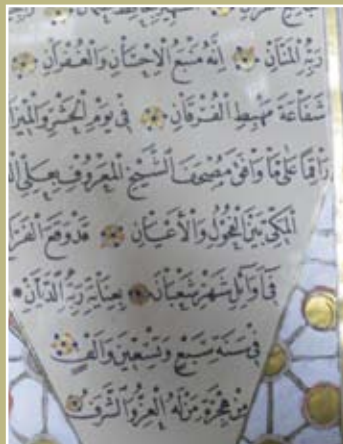 رَبِّهِ الْمَنَّانِ اِنَّهُ مَنْبَعُ الْاِحْسَانِ وَالْغُفْرَانِ
شَفَاعَةَ مَهْبِطِ الْفُرْقَانِ فِى يَوْمِ الْحَشْرِ وَالْمِيزَا
عَلٰى وَافَقَ مُصْحَفَ الشَّيْخِ الْمَعْرُوفِ بِعَلِىِّ
الْمَكِّىِّ بَيْنَ الْفُحُولِ وَالْاَعْيَانِ قَدْ وَقَعَ الْفَرَا
فِى اَوَائِلِ شَهْرِ شَعْبَانَ بِعِنَايَةِ رَبِّهِ الدَّيَّانِ
فِى سَنَةِ سَبْعٍ وَتِسْعِينَ وَاَلْفٍ
مِنْ هِجْرَةِ مَنْ لَهُ الْعِزُّ وَالشَّرَفُ